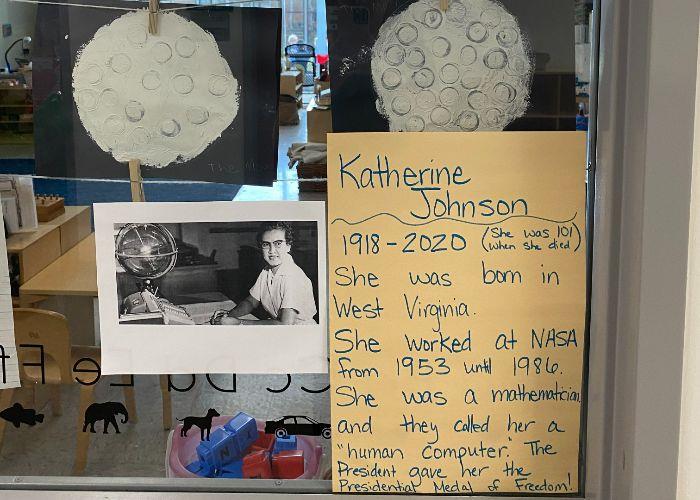 Katherine
Johnson
1918-2020 (She was 101
when she died)
She was born in
West Virginia.
She worked at NASA
from 1953 until 1986.
She was a mathematician,
and they called her a
"human computer." The
President gave her the
Presidential Medal of Freedom!
Ff Ee Dd Cc